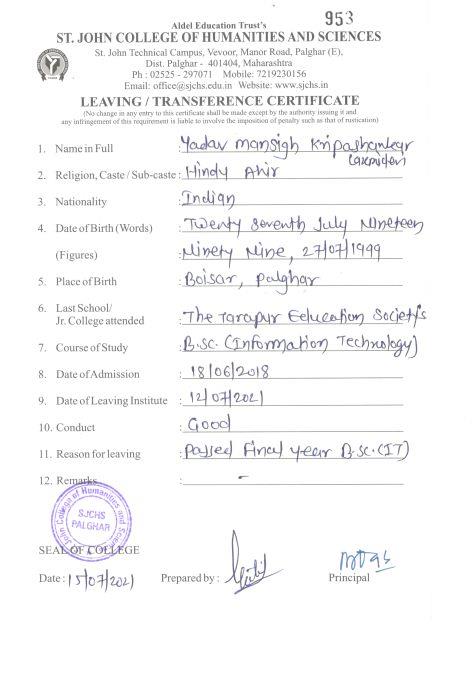 Aldel Education Trust's
953
ST. JOHN COLLEGE OF HUMANITIES AND SCIENCES
St. John Technical Campus, Vevoor, Manor Road, Palghar (E),
Dist. Palghar - 401404, Maharashtra
Ph : 02525 - 297071 Mobile: 7219230156
Email: office@sjchs.edu.in Website: www.sjchs.in
LEAVING / TRANSFERENCE CERTIFICATE
(No change in any entry to this certificate shall be made except by the authority issuing it and
any infringement of this requirement is liable to involve the imposition of penalty such as that of rustication)
1. Name in Full : Yadav Mansigh Kripashankar
2. Religion, Caste / Sub-caste : Hindu Ahir
3. Nationality : Indian
4. Date of Birth (Words) : Twenty Seventh July Nineteen
(Figures) : Ninety Nine, 27/07/1999
5. Place of Birth : Boisar, Palghar
6. Last School/
Jr. College attended : The Tarapur Education Society's
7. Course of Study : B.Sc. (Information Technology)
8. Date of Admission : 18/06/2018
9. Date of Leaving Institute : 12/07/2021
10. Conduct : Good
11. Reason for leaving : Passed Final year B.Sc.(IT)
12. Remarks : -
St. John College of Humanities and Sciences
SJCHS
PALGHAR
SEAL OF COLLEGE
Date : 15/07/2021 Prepared by : Principal